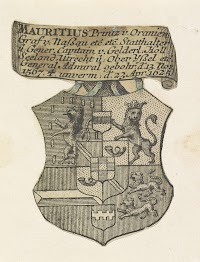 MAURITIUS Printz v. Oranien
Graf v. Nassau etc etc Statthalter
u. Gener. Capitain v. Gelderl. Holl
Seeland, Utrecht u. Ober Yssel etc
General Admiral gebohr. d. 13 Nov.
1567. † unverm. d. 23. Apr. 1625